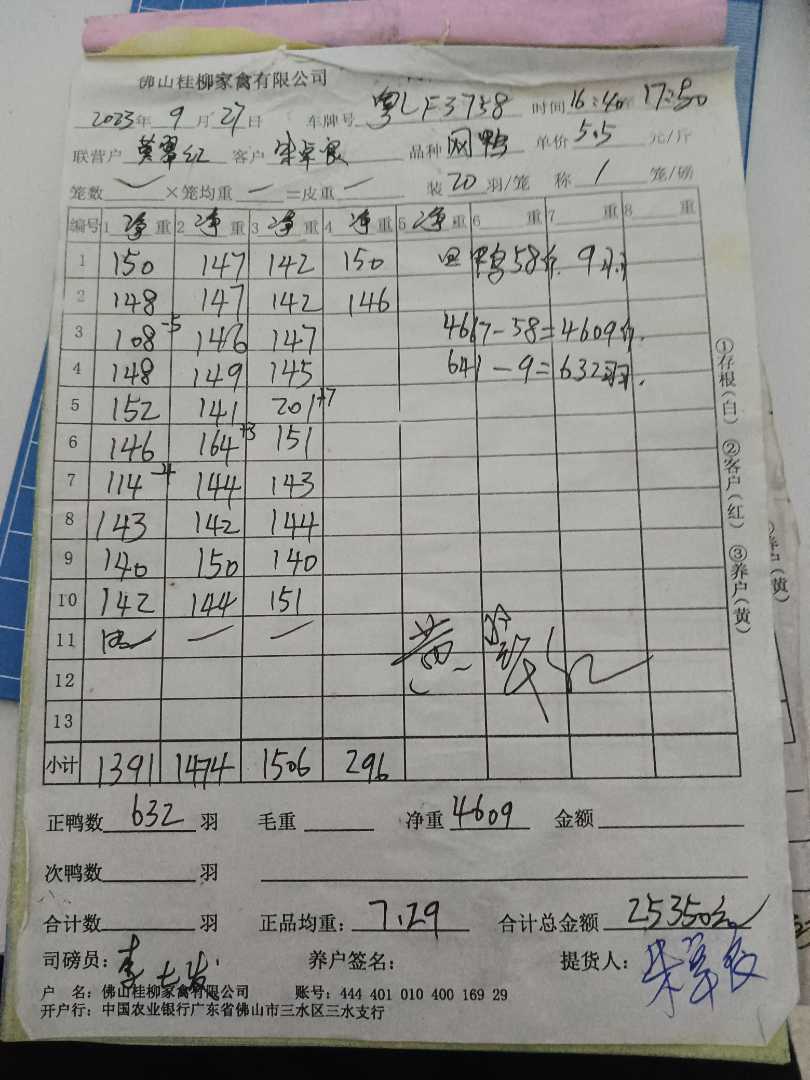 佛山桂柳家禽有限公司
2023年 9 月 27 日 车牌号 粤LF3758 时间 16:40 至 17:50
联营户 黄翠红 客户 朱卓良 品种 网鸭 单价 5.5 元/斤
笼数 ✓ ×笼均重 — =皮重 — 装 20 羽/笼 称 1 笼/磅
编号 1 净 重 2 净 重 3 净 重 4 净 重 5 净 重 6 重 7 重 8 重
1 150 147 142 150 回鸭58斤. 9羽
2 148 147 142 146
3 108 -5 146 147 4667-58=4609斤.
4 148 149 145 641-9=632羽.
5 152 141 201 +7
6 146 164 +3 151
7 114 -4 144 143
8 143 142 144
9 140 150 140
10 142 144 151
11 — —
12
13
小计 1391 1474 1506 296
正鸭数 632 羽 毛重 净重 4609 金额
次鸭数 羽
合计数 羽 正品均重: 7.29 合计总金额 25350元
司磅员: 养户签名: 提货人: 朱卓良
户 名: 佛山桂柳家禽有限公司 账号: 444 401 010 400 169 29
开户行: 中国农业银行广东省佛山市三水区三水支行
①存根(白) ②客户(红) ③养户(黄)
养户(黄)